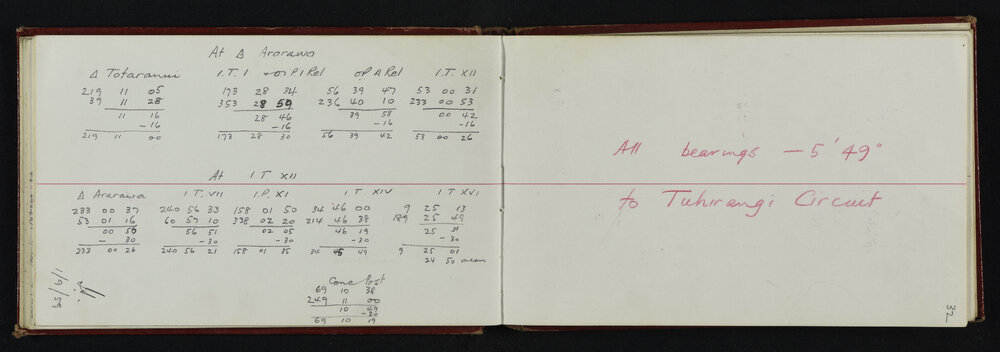 At Δ Ararawa
Δ Totaranui I.T. I or P I Rel or A Rel I.T. XII
219 11 05 173 28 34 56 39 47 53 00 31
39 11 28 353 28 59 236 40 10 233 00 53
11 16 28 46 39 58 00 42
-16 -16 -16 -16
219 11 00 173 28 30 56 39 42 53 00 26
At I.T. XII
Δ Ararawa I.T. VII I.P. XI I.T. XIV I.T. XVI
233 00 37 240 56 33 158 01 50 34 46 00 9 25 13
53 01 16 60 57 10 338 02 20 214 46 38 189 25 49
00 56 56 51 02 05 46 19 25 31
- 30 -30 -30 -30 -30
233 00 26 240 56 21 158 01 35 34 45 49 9 25 01
24 50 mean
Conc Post
69 10 38
249 11 00
10 49
-30
69 10 19
All bearings - 5' 49"
to Tuhirangi Circuit
32